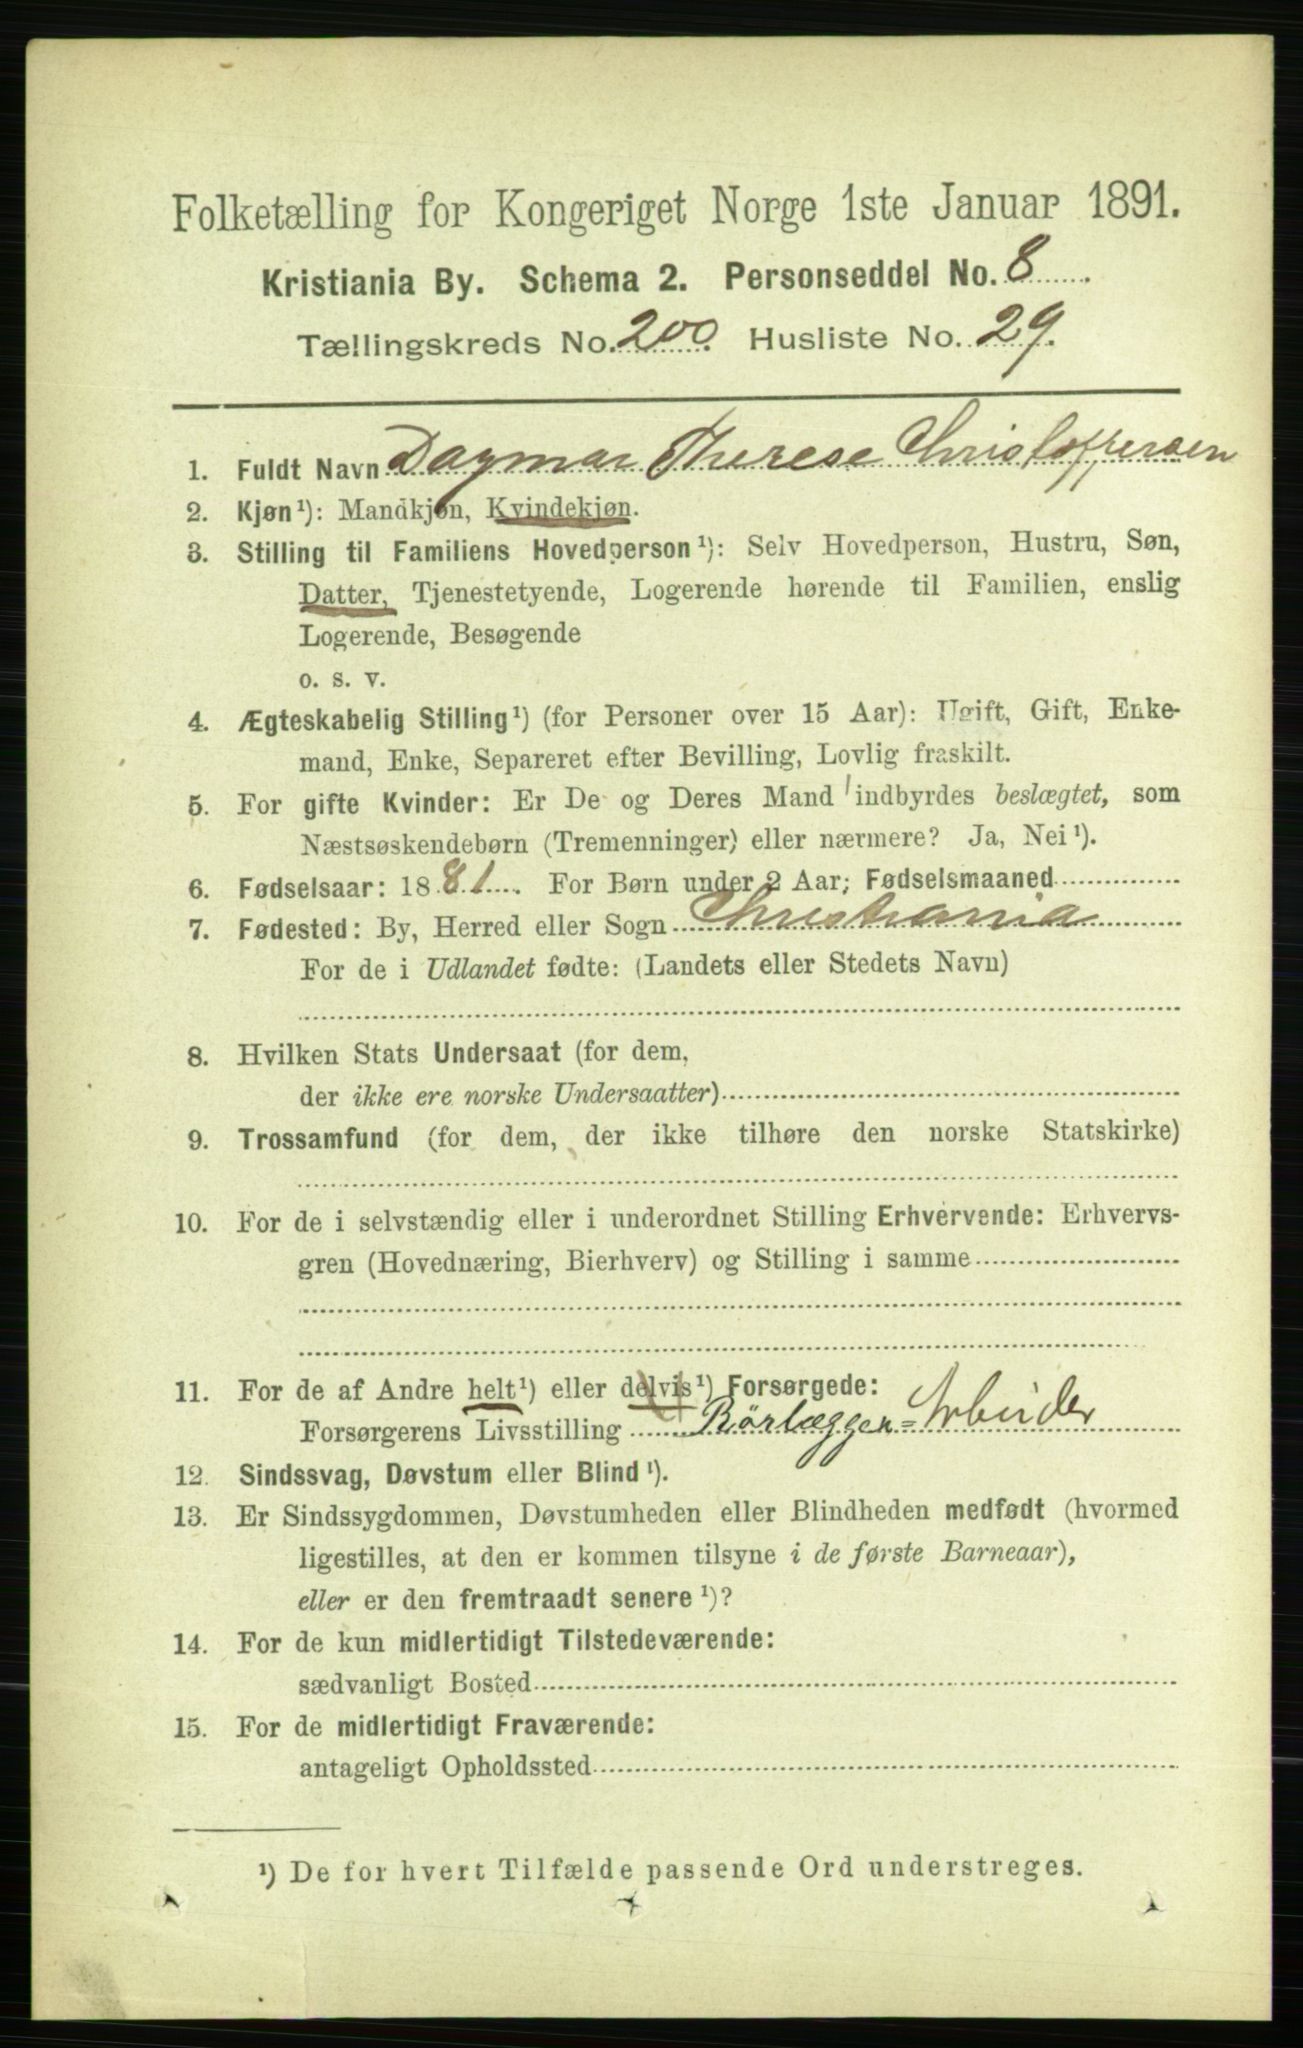 Folketælling for Kongeriget Norge 1ste Januar 1891.
Kristiania By. Schema 2. Personseddel No. 8
Tællingskreds No. 200. Husliste No. 29.
1. Fuldt Navn Dagmar Therese Christoffersen
2. Kjøn¹): Mandkjøn, Kvindekjøn.
3. Stilling til Familiens Hovedperson¹): Selv Hovedperson, Hustru, Søn,
Datter, Tjenestetyende, Logerende hørende til Familien, enslig
Logerende, Besøgende
o. s. v.
4. Ægteskabelig Stilling¹) (for Personer over 15 Aar): Ugift, Gift, Enke-
mand, Enke, Separeret efter Bevilling, Lovlig fraskilt.
5. For gifte Kvinder: Er De og Deres Mand indbyrdes beslægtet, som
Næstsøskendebørn (Tremenninger) eller nærmere? Ja, Nei¹).
6. Fødselsaar: 1881. For Børn under 2 Aar: Fødselsmaaned
7. Fødested: By, Herred eller Sogn Christiania
For de i Udlandet fødte: (Landets eller Stedets Navn)
8. Hvilken Stats Undersaat (for dem,
der ikke ere norske Undersaatter)
9. Trossamfund (for dem, der ikke tilhøre den norske Statskirke)
10. For de i selvstændig eller i underordnet Stilling Erhvervende: Erhvervs-
gren (Hovednæring, Bierhverv) og Stilling i samme
11. For de af Andre helt¹) eller delvis¹) Forsørgede:
Forsørgerens Livsstilling Rörlæggen=Arbeider
12. Sindssvag, Døvstum eller Blind¹).
13. Er Sindssygdommen, Døvstumheden eller Blindheden medfødt (hvormed
ligestilles, at den er kommen tilsyne i de første Barneaar),
eller er den fremtraadt senere¹)?
14. For de kun midlertidigt Tilstedeværende:
sædvanligt Bosted
15. For de midlertidigt Fraværende:
antageligt Opholdssted
¹) De for hvert Tilfælde passende Ord understreges.